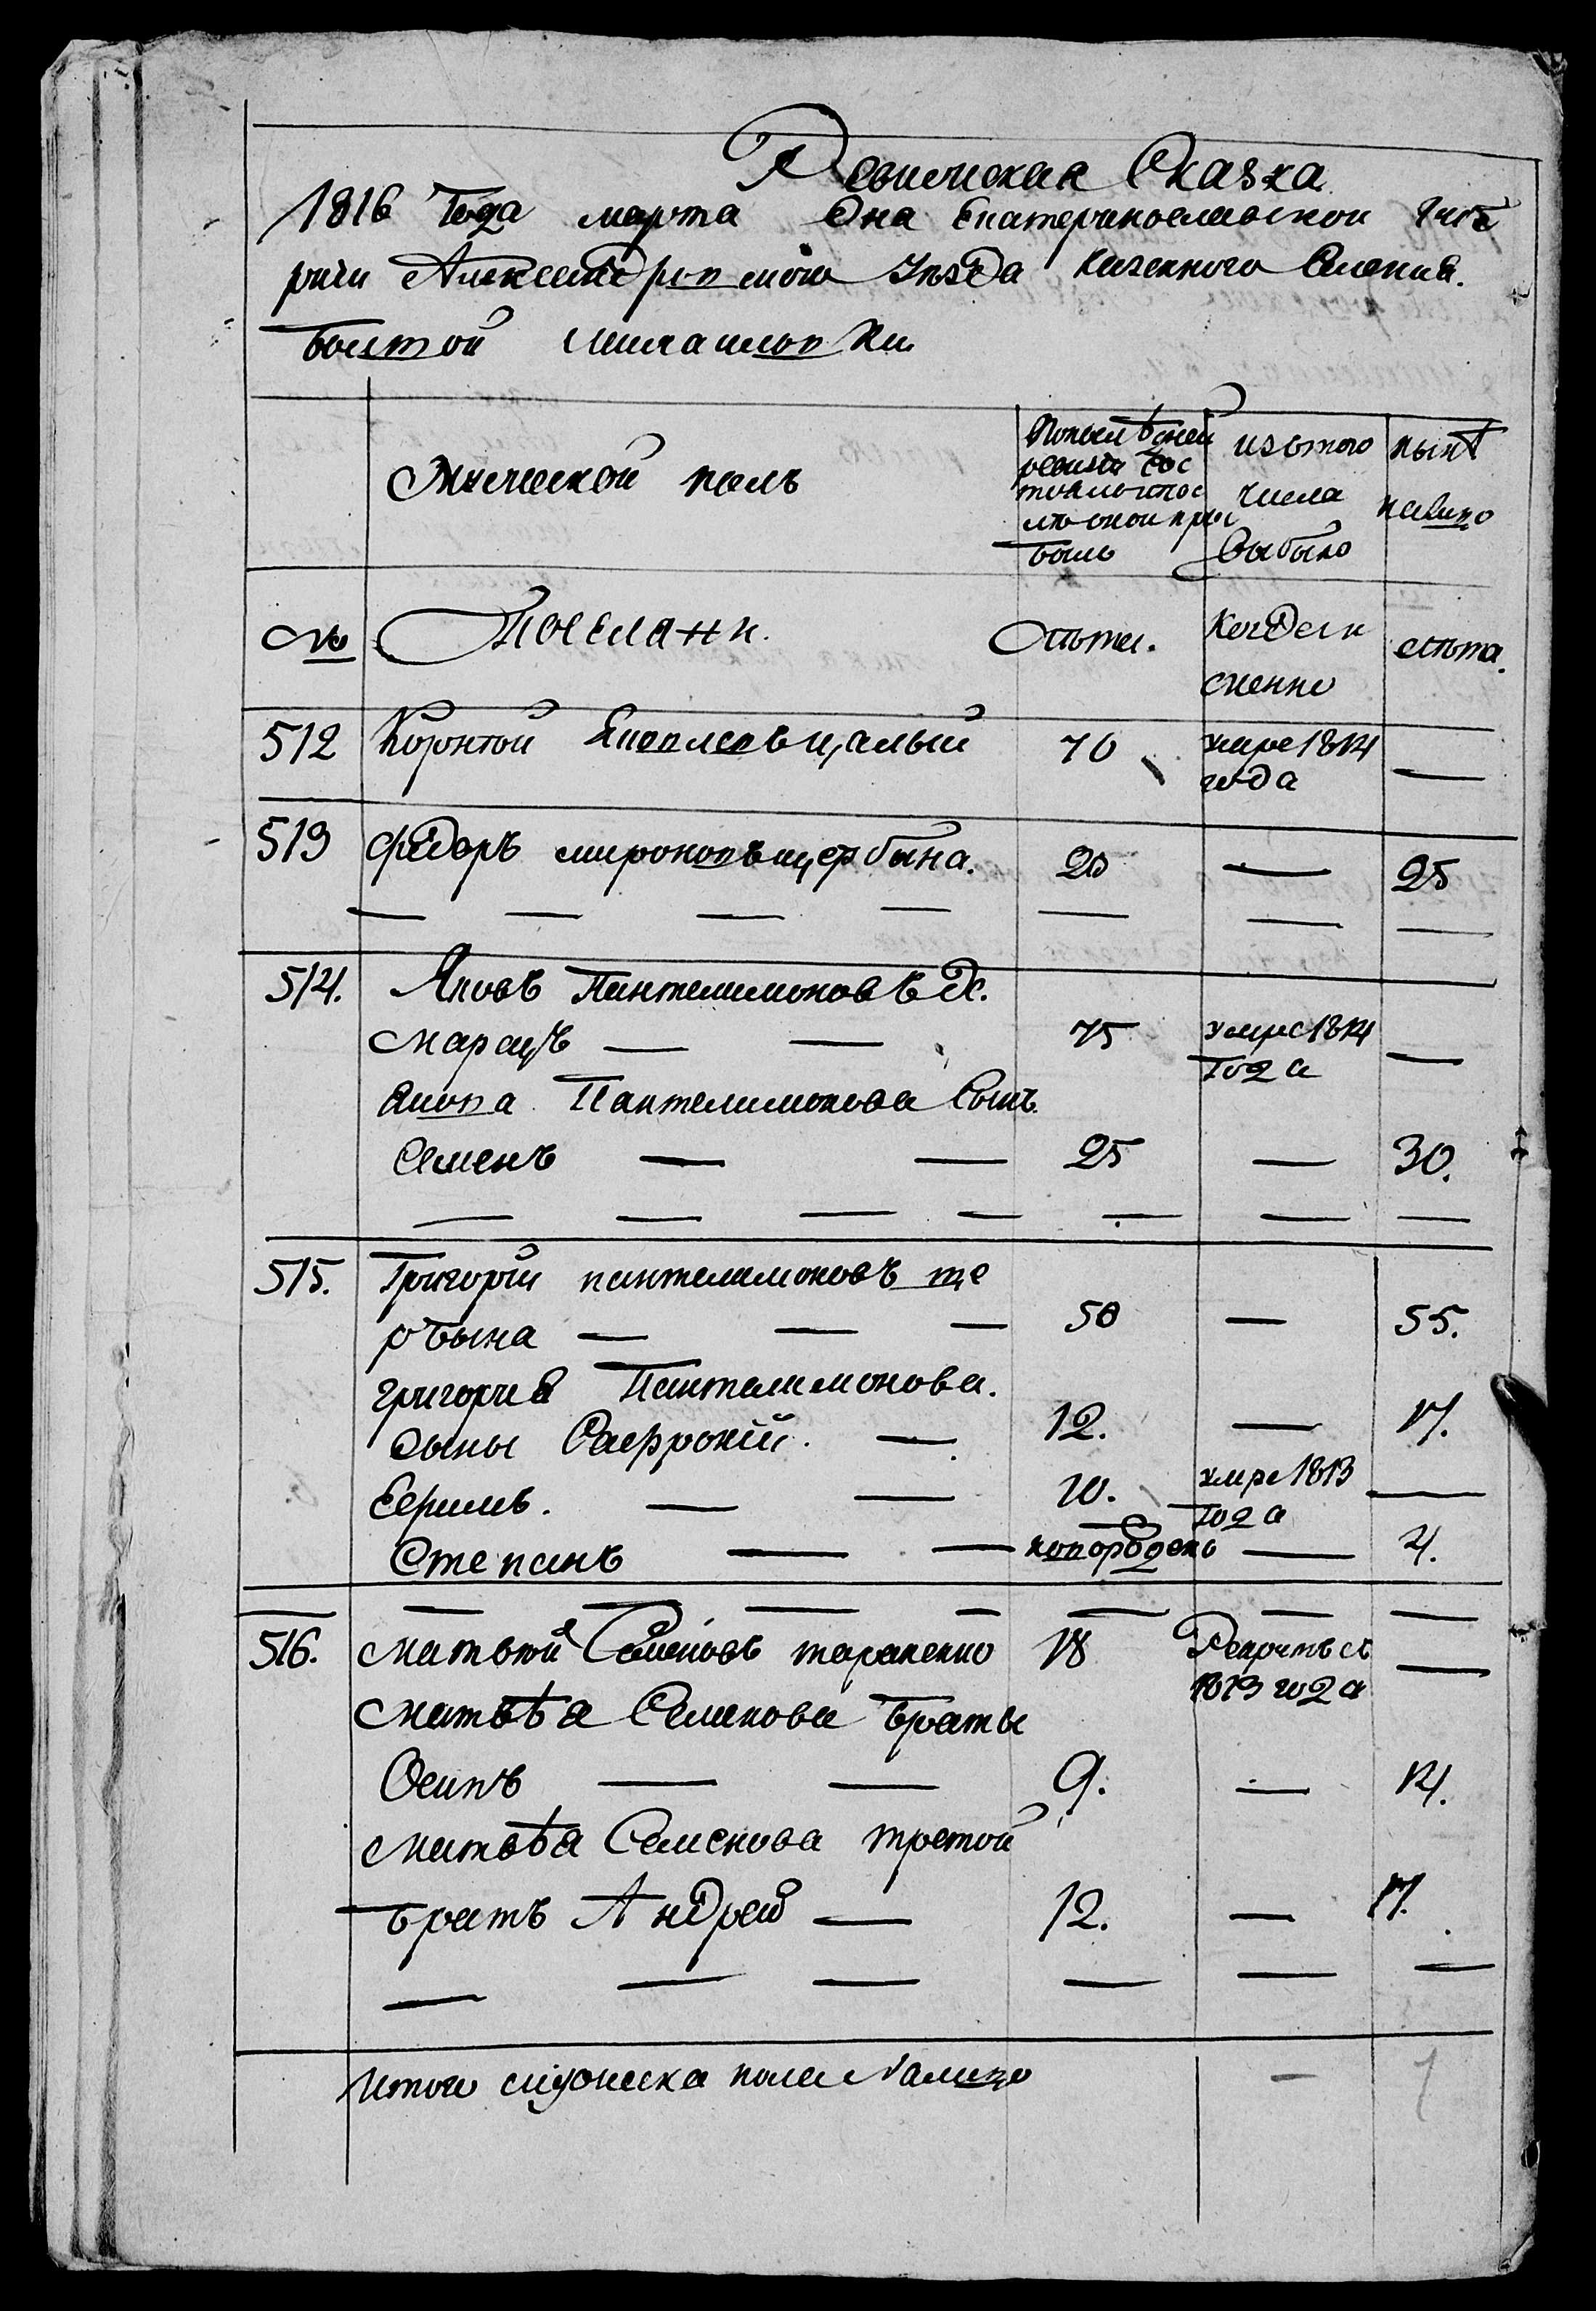 Ревижская Сказка
1816 Года марта дна Екатеринославской Губе
рнии Александровского уезда казенного Селения
болшой
Мужеской полъ
Попослѣдней
ревизіи сос
тояло ипос
ле оной при
было
изътого
числа
выбыло
нынѣ
налицо
№
Поселяни.
Лѣта.
Когда и
менно
лѣта.
512 Коронтой Яковлевъ цалый 70 умре 1814
года —
513 Федоръ мироновъ щербына. 20 — 25
— — — — — — —
514. Яковъ Пантелимоновъ Же
марацъ — — 75 умре 1814
Года —
Якова Пантелимонова Сынъ
Семенъ — — 25 — 30.
— — — — — — —
515. Григорій пантелимоновъ ще
рбына — — — 50 — 55.
григория Пантелимонова.
сыны Сафроній. — 12. — 17.
Ефимъ. — — 10. умре 1813
Года —
Степанъ — — новорожденъ — 4.
— — — — — — —
516. Матвей Семеновъ тараненко 18 Рекрутъ съ
1813 года —
Матвѣя Семенова браты
Осипъ — — 9. — 14.
Матвѣя Семенова третой
братъ Андрей — 12. — 17.
— — — — — —
Итого мужеска пола Налицо — 7